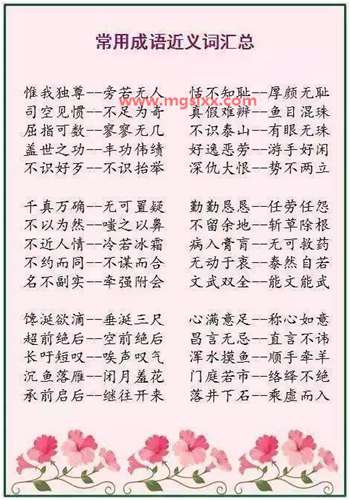 常用成语近义词汇总
惟我独尊--旁若无人 恬不知耻--厚颜无耻
www.mgslxx.com
司空见惯--不足为奇 真假难辨--鱼目混珠
屈指可数--寥寥无几 不识泰山--有眼无珠
盖世之功--丰功伟绩 好逸恶劳--游手好闲
不识好歹--不识抬举 深仇大恨--势不两立
千真万确--无可置疑 勤勤恳恳--任劳任怨
不以为然--嗤之以鼻 不留余地--斩草除根
不近人情--冷若冰霜 病入膏肓--无可救药
不约而同--不谋而合 无动于衷--泰然自若
名不副实--牵强附会 文武双全--能文能武
馋涎欲滴--垂涎三尺 心满意足--称心如意
超前绝后--空前绝后 昌言无忌--直言不讳
长吁短叹--唉声叹气 浑水摸鱼--顺手牵羊
沉鱼落雁--闭月羞花 门庭若市--络绎不绝
承前启后--继往开来 落井下石--乘虚而入